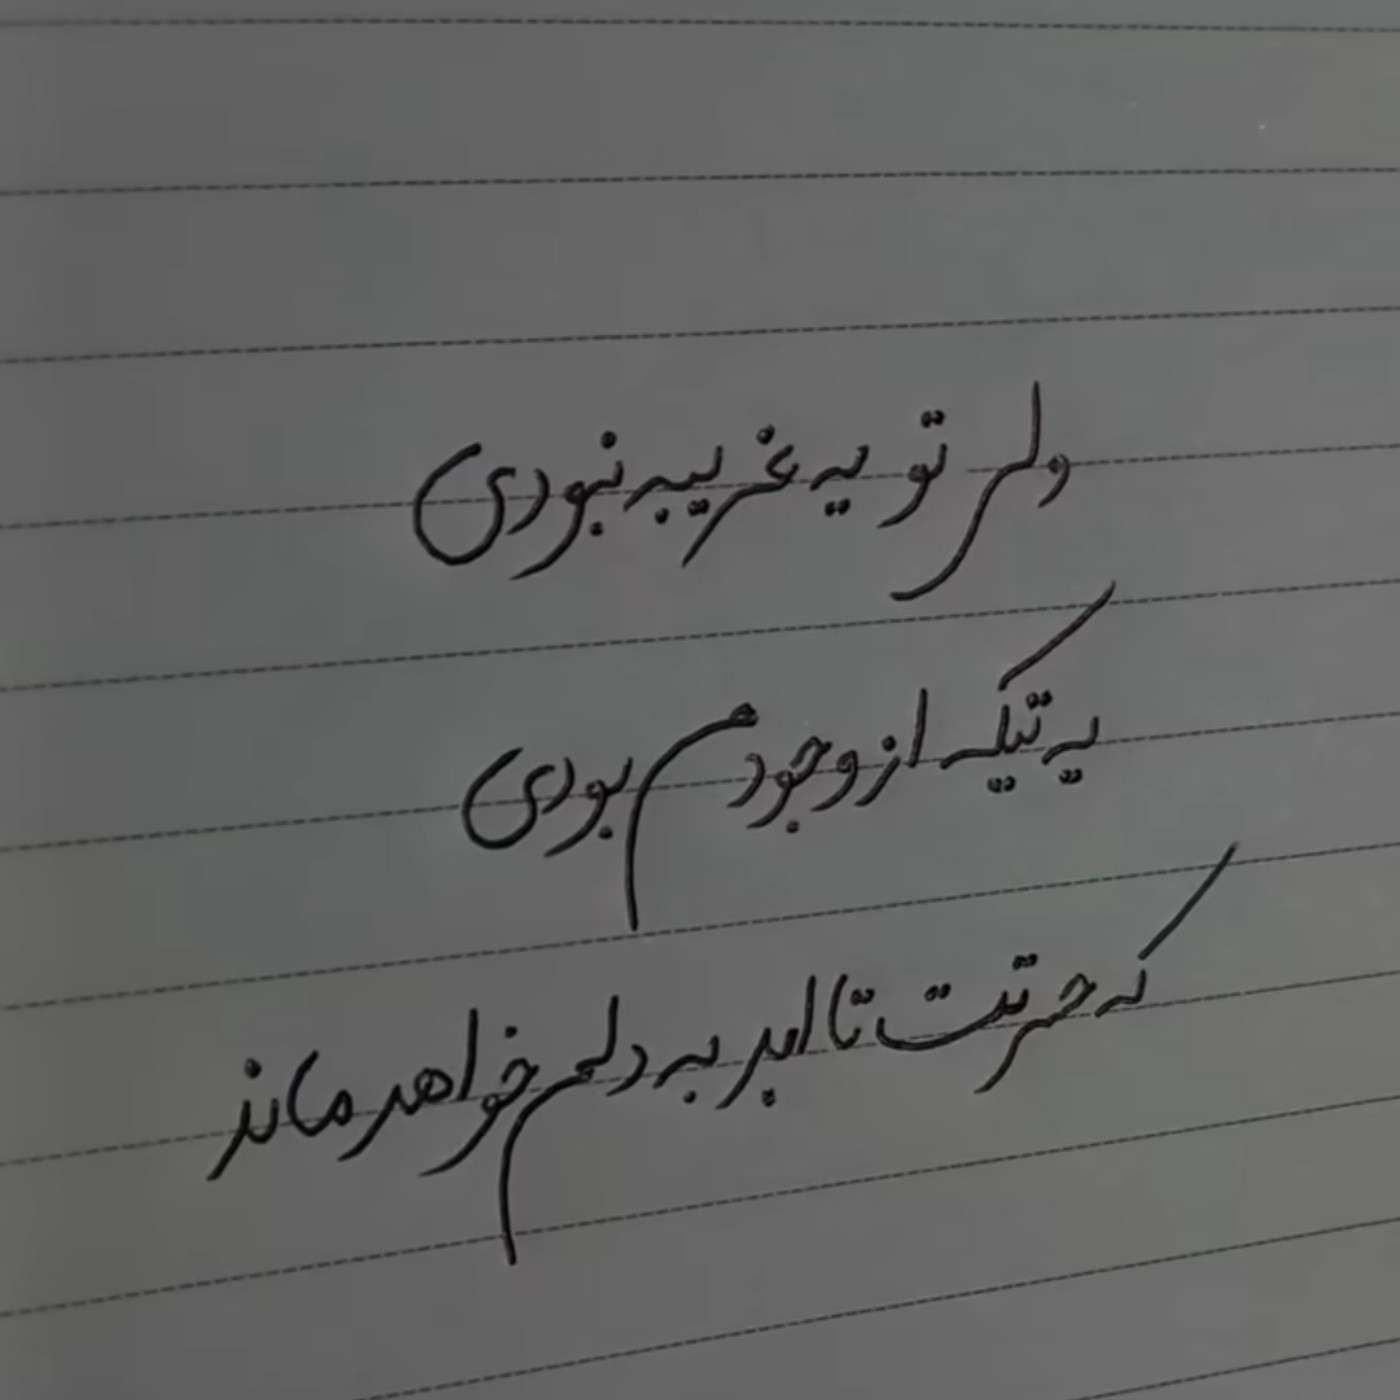 ولی تو یه غریبه نبودی
یه تیکه از وجودم بودی
که حسرتت تا ابد به دلم خواهد ماند